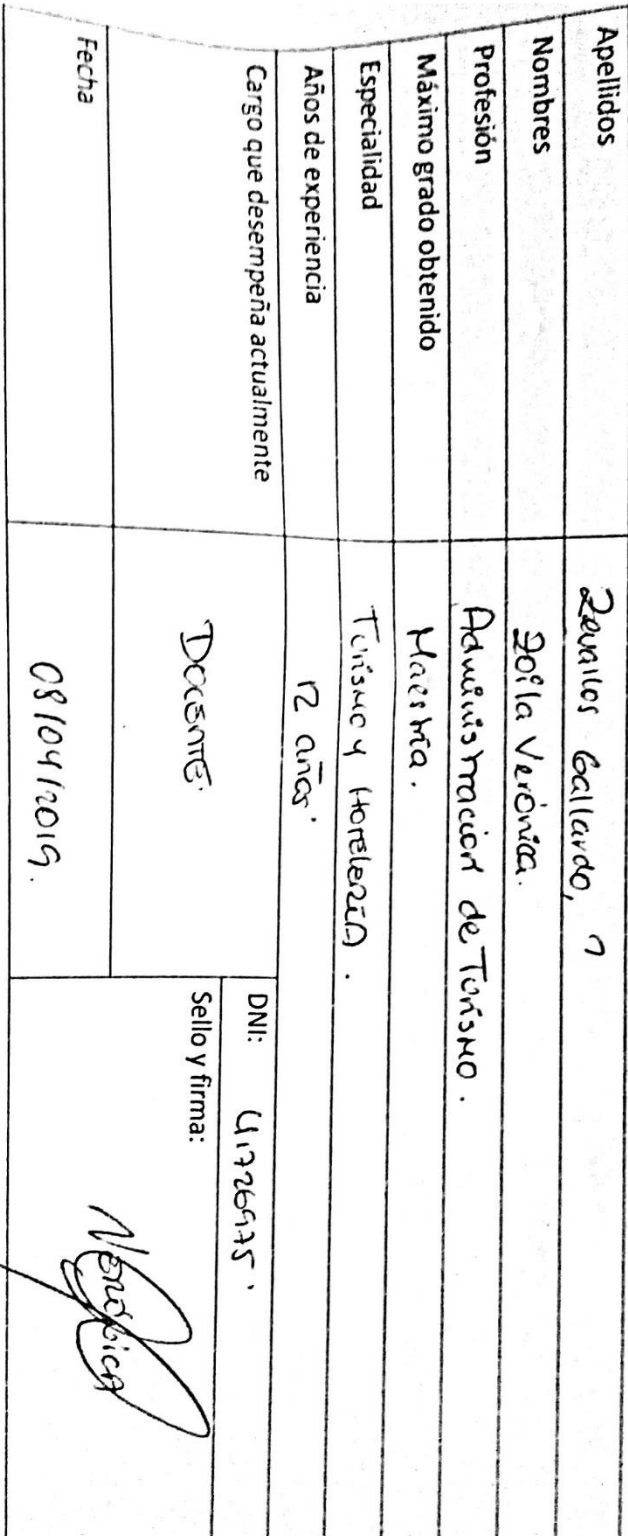 Apellidos Zevallos Gallardo,
Nombres Zoila Verónica.
Profesión Administración de Turismo.
Máximo grado obtenido Maestría.
Especialidad Turismo y Hotelería.
Años de experiencia 12 años
Cargo que desempeña actualmente Docente
DNI: 41726975
Sello y firma:
Verónica
Fecha 08/04/2019.